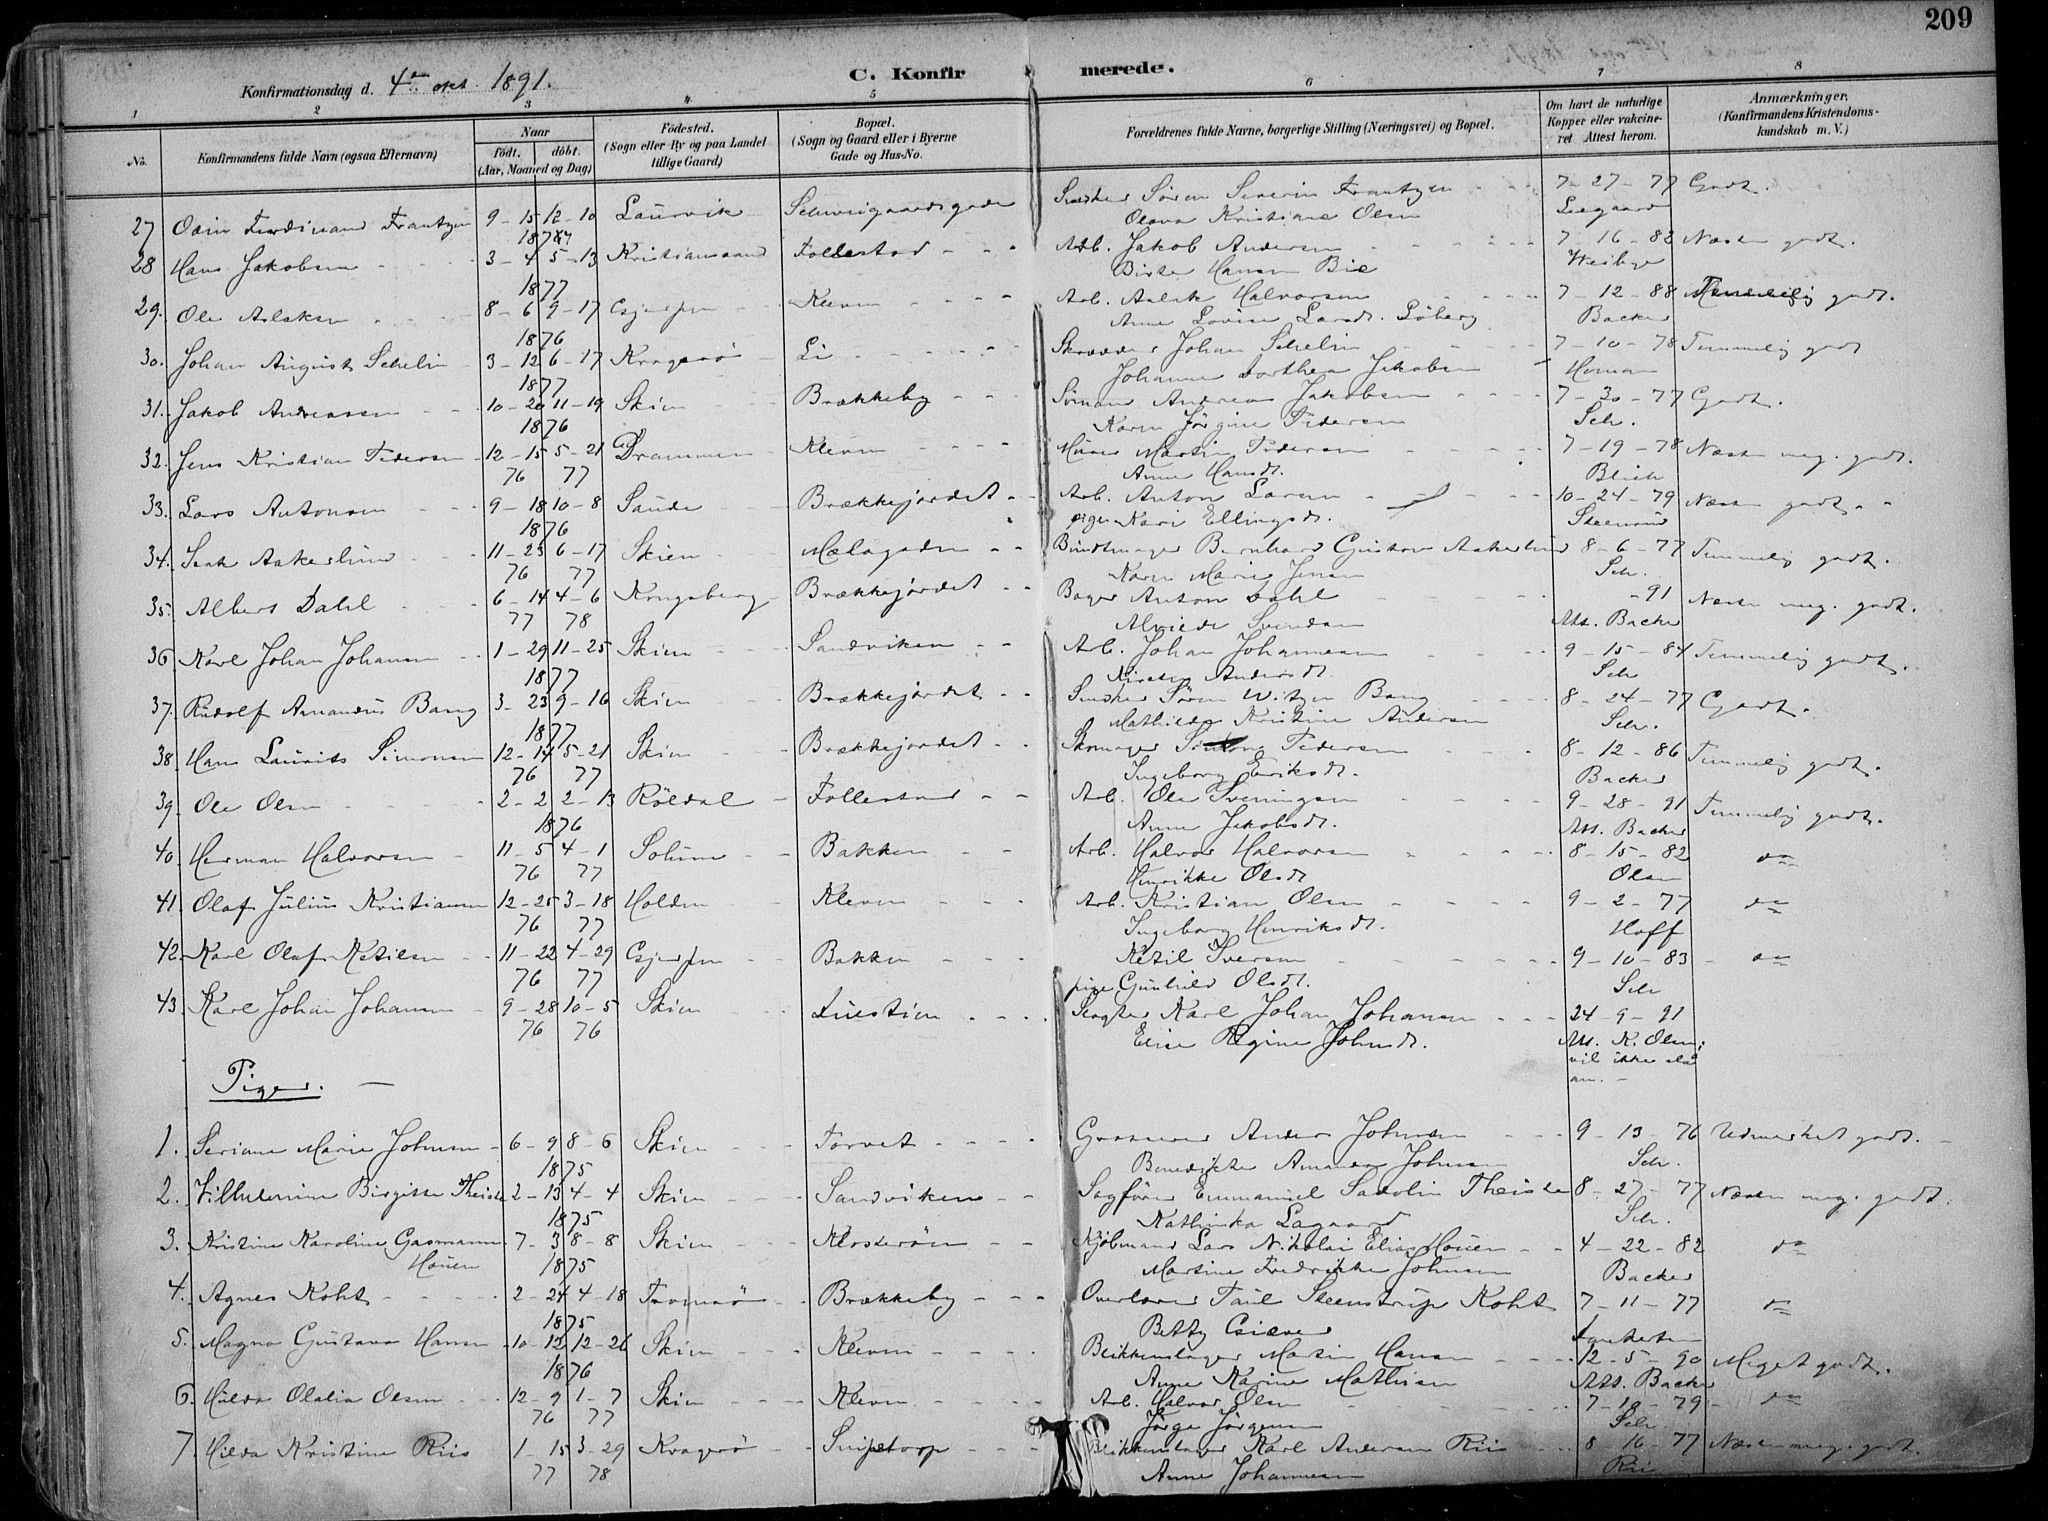 209
Konfirmationsdag d. 4de okt 1891.
C. Konfirmerede.
1 2 3 4 5 6 7 8
No. Konfirmandens fulde Navn (ogsaa Efternavn)
Naar født. døbt. (Aar, Maaned og Dag)
Fødested. (Sogn eller By og paa Landet tillige Gaard)
Bopæl. (Sogn og Gaard eller i Byerne Gade og Hus-No.
Forældrenes fulde Navne, borgerlige Stilling (Næringsvei) og Bopæl.
Om havt de naturlige Kopper eller vakcineret Attest herom.
Anmærkninger. (Konfirmandens Kristendomskundskab m. V.)
27 Odin Ferdinand Frantzen 9-15 12-10 Laurvik Schweigaardsgade Snedker Søren Severin Frantzen 7-27-77 Godt.
Olava Kristiane Olsen
28 Hans Jakobsen 3-4 5-13 Kristiansand Follestad Arb. Jakob Andersen 7-16-82 Næsten godt.
1877 Birte Hansen Bie
29. Ole Aslaksen 8-6 9-17 Gjerpen Kleven Arb. Aslak Halvorsen 7-12-88 Temmelig godt.
1876 Anne Lovise Larsdt. Løberg Backer
30. Johan August Schelin 3-12 6-17 Kragerø Li Skrædder Johan Schelin 7-10-78 Temmelig godt
1877 Johanne Dorthea Jakobsen Homan
31. Jakob Andreassen 10-20 11-19 Skien Brækkeby Sømand Andreas Jakobsen 7-30-77 Godt.
1876 Karen Jørgine Pedersen Sch.
32. Jens Kristian Pedersen 12-15 5-21 Drammen Kleven Murer Martin Pedersen 7-19-78 Næsten meg. godt.
76 77 Anne Hansdt. Blich
33. Lars Antonsen 9-18 10-8 Saude Brækkejordet Arb. Anton Larsen 10-24-79 Næsten godt.
1876 pige Kari Ellingsdt. Steenrud
34. Isak Aakerlund 11-23 6-17 Skien Mælagaden Buntmager Bernhard Gustav Aakerlund 8-6-77 Temmelig godt.
76 77 Karen Marie Jensen Sch.
35. Albert Dahl 6-14 4-6 Kongsberg Brækkejordet Bager Anton Dahl -91 Næsten meg. godt.
77 78 Alvilde Svendsen Att. Backer
36 Karl Johan Johansen 1-29 11-25 Skien Sandviken Arb. Johan Johannesen 9-15-84 Temmelig godt.
1877 Kirsten Andersdt. Sch
37. Rudolf Amandus Bang 3-23 9-16 Skien Brækkejordet Snedker Søren Witzen Bang 8-24-77 Godt.
1877 Mathilde Kristine Andersen Sch.
38. Hans Laurits Simonsen 12-14 5-21 Skien Brækkejordet Skomager Simon Pedersen 8-12-86 Temmelig godt.
76 77 Ingeborg Eriksdt. Backer
39. Ole Olsen 2-2 2-13 Røldal Follestad Arb. Ole Sveningsen 9-28-91 Temmelig godt.
1876 Anne Jakobsdt. Att. Backer
40. Herman Halvorsen 11-5 4-1 Solum Bakken Arb. Halvor Halvorsen 8-15-82 do
76 77 Henrikke Olsdt Olsen
41. Olaf Julius Kristiansen 12-25 3-18 Holden Kleven Arb. Kristian Olsen 9-2-77 do
76 77 Ingeborg Henriksdt. Hoff
42. Karl Olaf Ketilsen 11-22 4-29 Gjerpen Bakken Ketil Iversen 9-10-83 do
76 77 pige Gunhild Olsdt. Sch
43. Karl Johan Johansen 9-28 10-5 Skien Luestien Slagter Karl Johan Johansen 24-9-91
76 76 Elise Regine Johnsdt. Att. K. Olsen; vil ikke slå an.
Piger.
1. Seriane Marie Johnsen 6-9 8-6 Skien Torvet Grosserer Anders Johnsen 9-13-76 Udmerket godt.
1875 Benedikte Amanda Johnsen Sch.
2. Vilhelmine Birgitte Theiste 2-13 4-4 Skien Sandviken Sagfører Emmanuel Sadolin Theiste 8-27-77 Næsten meg. godt.
1875 Kathinka Lagaard Sch.
3. Kristine Karoline Gasmann Houen 7-3 8-8 Skien Klosterøen Kjøbmand Lars Nikolai Elias Houen 4-22-82 do
1875 Martine Fredrikke Johnsen Backer
4. Agnes Koht 2-24 4-18 Tromsø Brækkeby Overlærer Paul Steenstrup Koht 7-11-77 do
1875 Betty Giæver
5. Magna Gustava Hansen 10-12 12-26 Skien Kleven Blikkenslager Martin Hansen 12-5-90 Meget godt.
1876 Anne Karine Mathisen Att. Backer
6. Hilda Olalia Olsen 12-9 1-7 Skien Kleven Arb. Halvor Olsen 7-10-79 do
76 77 Jørge Jørgensen Sch.
7. Hilda Kristine Riis 1-15 3-29 Kragerø Snipetorp Blikkenslager Karl Andersen Riis 8-16-77 Næsten meg. godt.
77 78 Anne Johannesen Rii